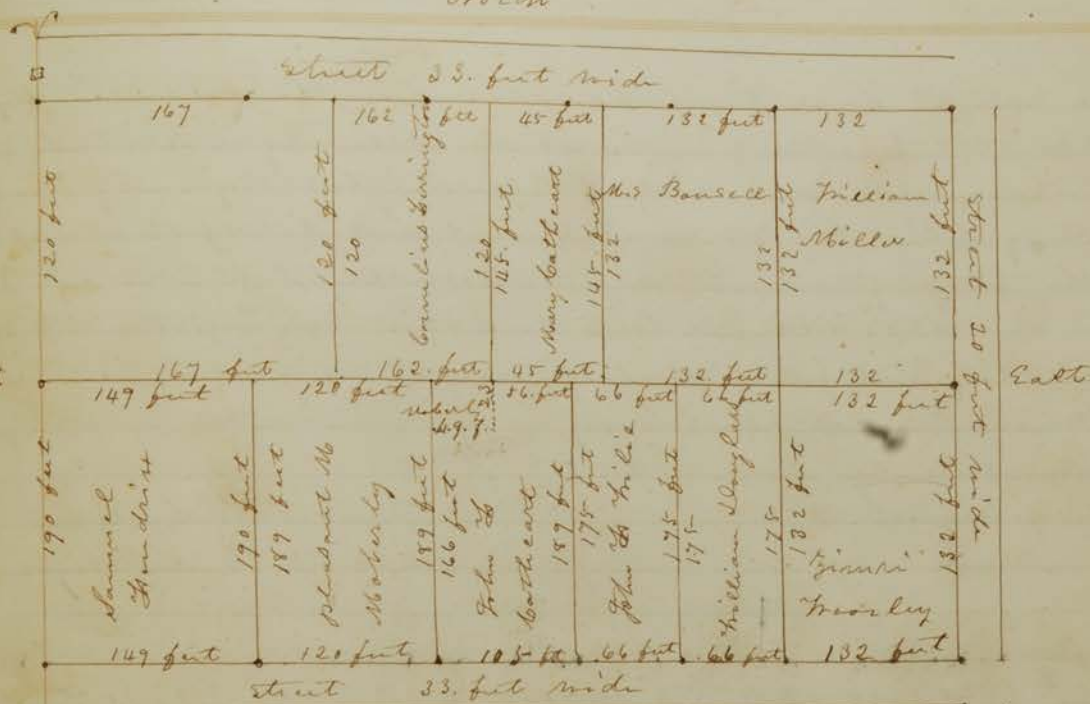 North
Street 33. feet wide
167
162 feet
45 feet
132 feet
132
120 feet
120 feet
120
Cornelius
120
145 feet
Mary Cathcart
145 feet
132
Mrs Bonsell
132
132 feet
William
Miller
132 feet
Street 20 feet wide
East
167 feet
162 feet
45 feet
132 feet
132
149 feet
120 feet
56 feet
66 feet
66 feet
132 feet
190 feet
Samuel
Hendrix
190 feet
189 feet
Pleasant M
Moberly
189 feet
166 feet
John
Cathcart
189 feet
175 feet
John
175 feet
175
William Douglass
175
132 feet
Zimri
Worley
132 feet
149 feet
120 feet
105 ft
66 feet
66 feet
132 feet
Street 33. feet wide